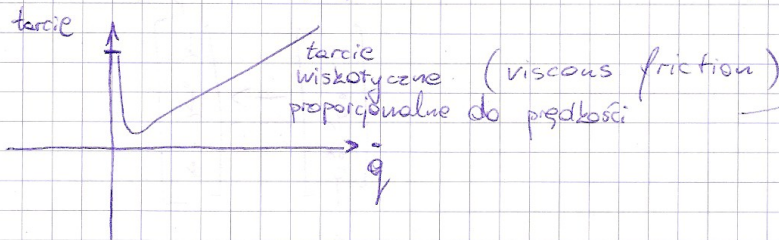 tarcie
tarcie
wiskotyczne (viscous friction)
proporcjonalne do prędkości
q̇